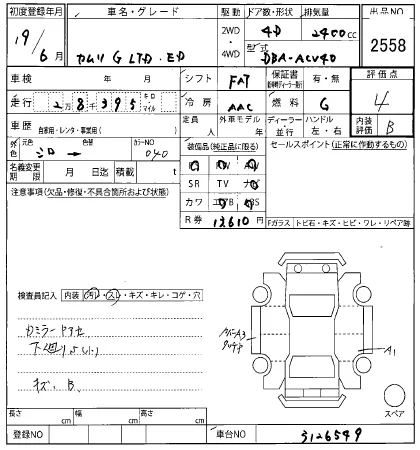 初度登録年月
車名・グレード
駆動
ドア数・形状
排気量
出品NO
19/6月
カムリ G LTD. ED
2WD
4WD
4D
2400cc
型式
DBA-ACV40
2558
車検 年 月
シフト
FAT
保証書
有・無
評価点
走行
2万8千395
キロ
マイル
冷房
AAC
燃料
G
4
車歴
自家用・レンタ・事業用( )
定員 人
外車モデル 年
ディーラー
並行
ハンドル
左・右
内装評価
B
色
元色
シロ
→
色替
カラーNO
040
装備品(純正品に限る)
セールスポイント(正常に作動するもの)
名義変更期限
月 日迄
積載 t
SR TV ナビ
カワ エアB ABS
R券 12610円
注意事項(欠品・修復・不具合箇所および状態)
Fガラス トビ石・キズ・ヒビ・ワレ・リペア跡
検査員記入
内装(汚レ・スレ・キズ・キレ・コゲ・穴
A1
キズ、B
スペア
長さ cm
幅 cm
高さ cm
登録NO
車台NO
3126549